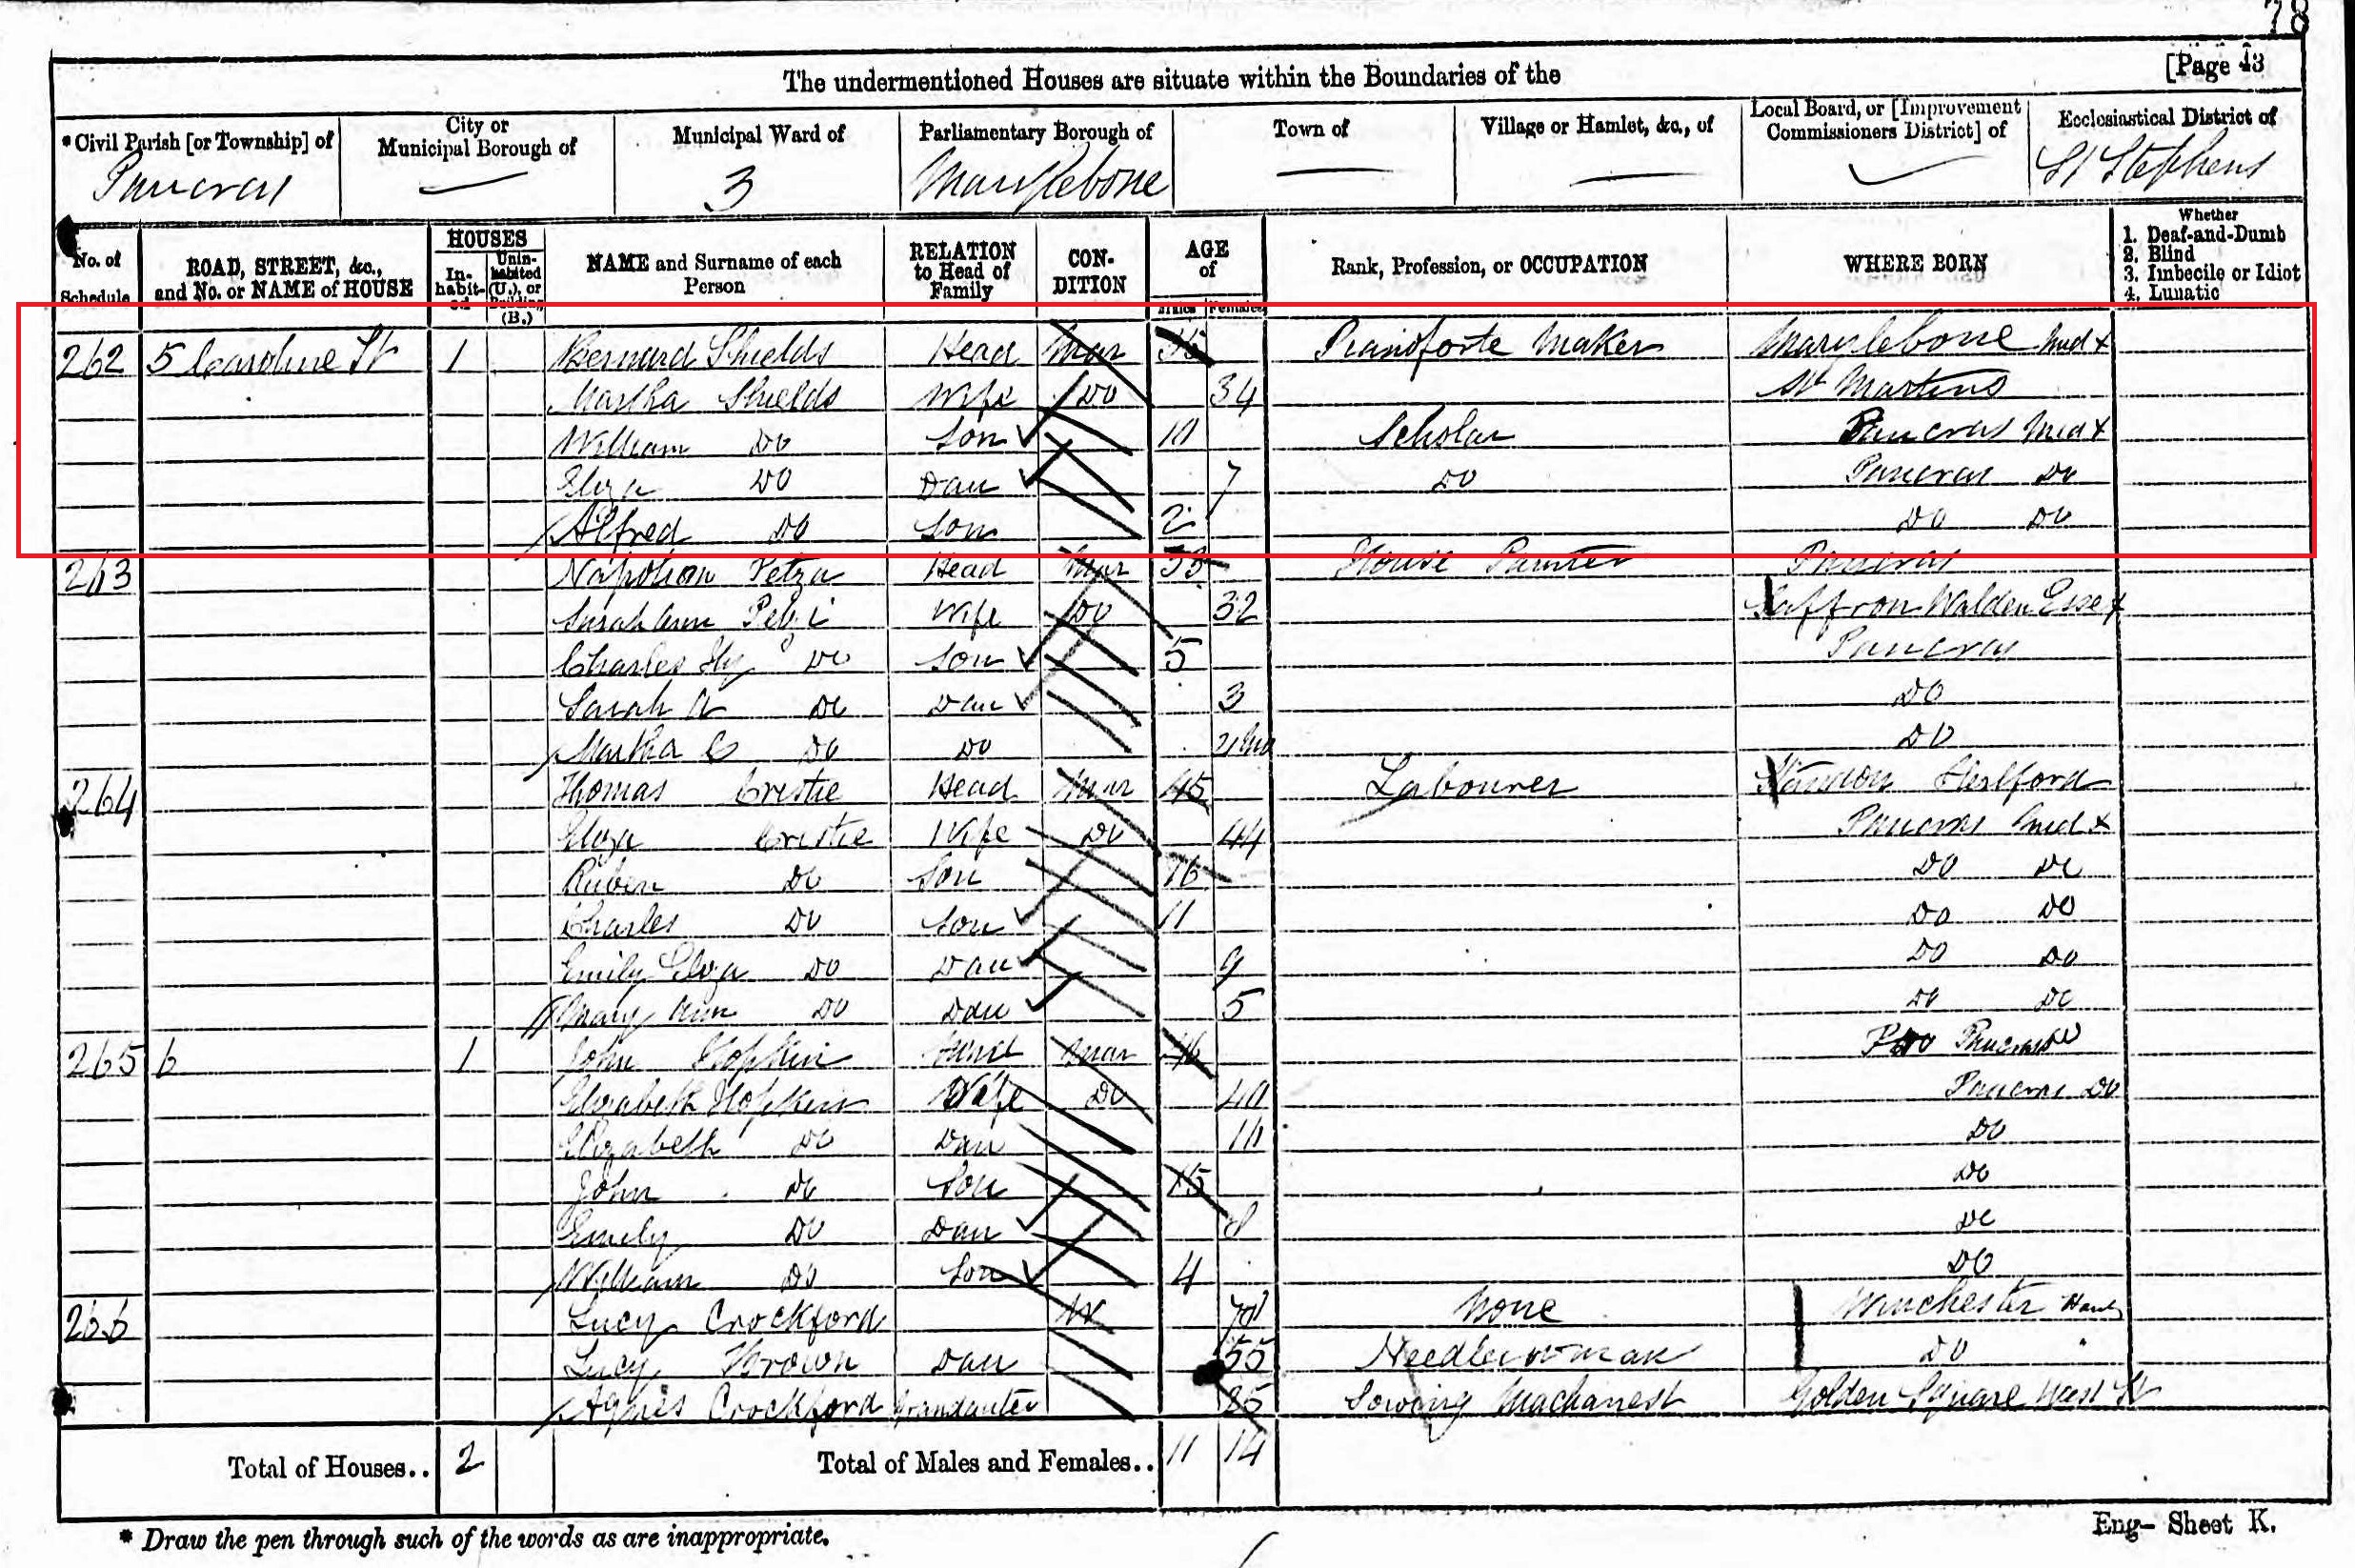 78
[Page 43
The undermentioned Houses are situate within the Boundaries of the
*Civil Parish [or Township] of City or Municipal Borough of Municipal Ward of Parliamentary Borough of Town of Village or Hamlet, &c., of Local Board, or [Improvement Commissioners District] of Ecclesiastical District of
Pancras 3 Marylebone St Stephens
No. of Schedule ROAD, STREET, &c., and No. or NAME of HOUSE HOUSES In-habit-ed Unin-habited (U.), or Building (B.) NAME and Surname of each Person RELATION to Head of Family CON-DITION AGE of Males Females Rank, Profession, or OCCUPATION WHERE BORN Whether 1. Deaf-and-Dumb 2. Blind 3. Imbecile or Idiot 4. Lunatic
262 5 Caroline St 1 Bernard Shields Head Mar Pianoforte Maker Marylebone Midx
Martha Shields Wife Do 34 St Martins
William Do Son 10 Scholar Pancras Midx
Eliza Do Dau 7 Do Pancras Do
Alfred Do Son 2 Do Do
263 Napoleon Head Mar House Painter Pancras
Sarah Ann Wife Do 32 Saffron Walden Essex
Charles Hy Do Son 5 Pancras
Sarah A Do Dau 3 Do
Martha Do Do Do
264 Thomas Cristie Head Mar 45 Labourer
Eliza Cristie Wife Do 44 Pancras Midx
Ruben Do Son 16 Do Do
Charles Do Son 11 Do Do
Emily Eliza Do Dau 9 Do Do
Mary Ann Do Dau 5 Do Do
265 6 1 John Hopkin Head Mar Pancras
Elizabeth Hopkin Wife Do 40 Pancras Do
Elizabeth Do Dau 10 Do
John Do Son 15 Do
Emily Do Dau 8 Do
William Do Son 4 Do
266 Lucy Crockford W None Winchester Hants
Lucy Brown Dau 55 Needlewoman Do
Agnes Crockford Grandauter 25 Sowing Machanest Golden Square West St
Total of Houses.. 2 Total of Males and Females.. 11 14
* Draw the pen through such of the words as are inappropriate.
Eng- Sheet K.